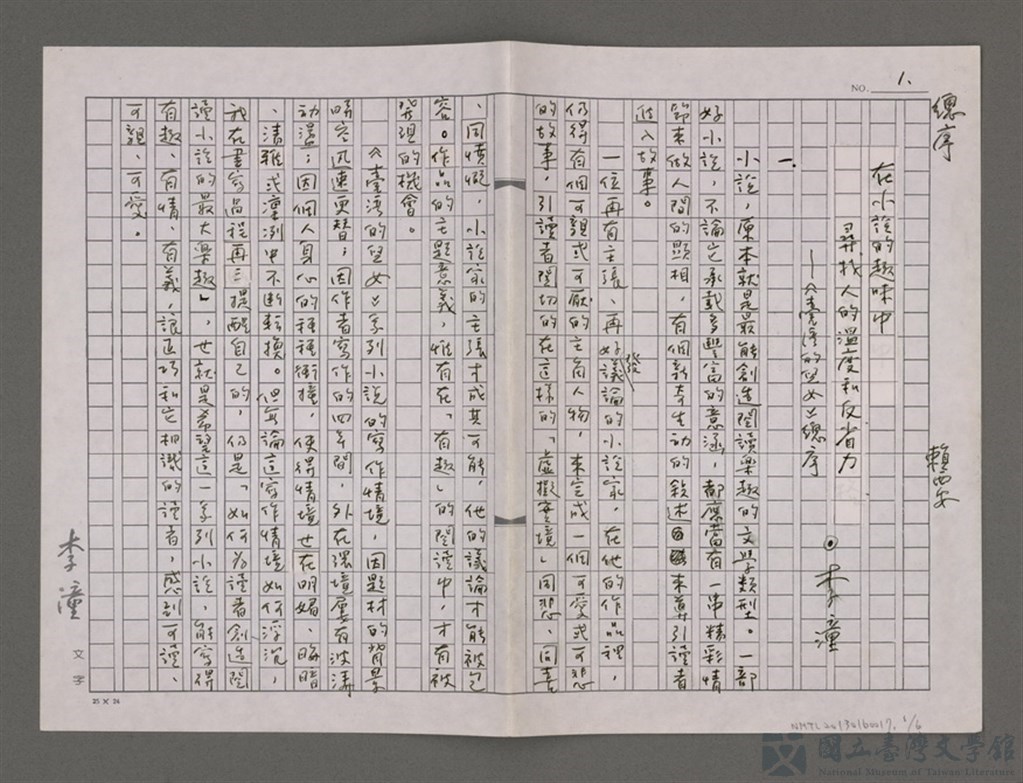 NO. 1.
總序
賴西安
在小說的趣味中
尋找人的溫度和反省力
——《臺灣的兒女》總序
李潼
一.
小說，原本就是最能創造閱讀樂趣的文學類型。一部
好小說，不論它承載多豐富的意涵，都應當有一串精彩情
節來做人間的顯相，有個新奇生動的敘述來導引讀者
進入故事。
一位再有主張、再好發議論的小說家，在他的作品裡，
仍得有個可親或可厭的主角人物，來完成一個可愛或可悲
的故事，引讀者関切的在這樣的「虛擬實境」同悲、同喜
、同憤慨，小說家的主張才成其可能，他的議論才能被包
容。作品的主題意義，惟有在「有趣」的閱讀中，才有被
發現的機會。
《臺灣的兒女》系列小說的寫作情境，因題材的背景
時空迅速更替；因作者寫作的四年間，外在環境屢有波濤
動盪；因個人身心的種種衝撞，使得情境也在明媚、晦暗
、清雅或凜冽中不断転換。但無論這寫作情境如何浮沉，
我在書寫過程再三提醒自己的，仍是「如何為讀者創造閱
讀小說的最大樂趣」，也就是希望這一系列小說，能寫得
有趣、有情、有義，讓正巧和它相識的讀者，感到可讀、
可親、可愛。
李潼
文字
25 × 24
NMTL20130160017, 1/6
國立臺灣文學館
National Museum of Taiwan Literature